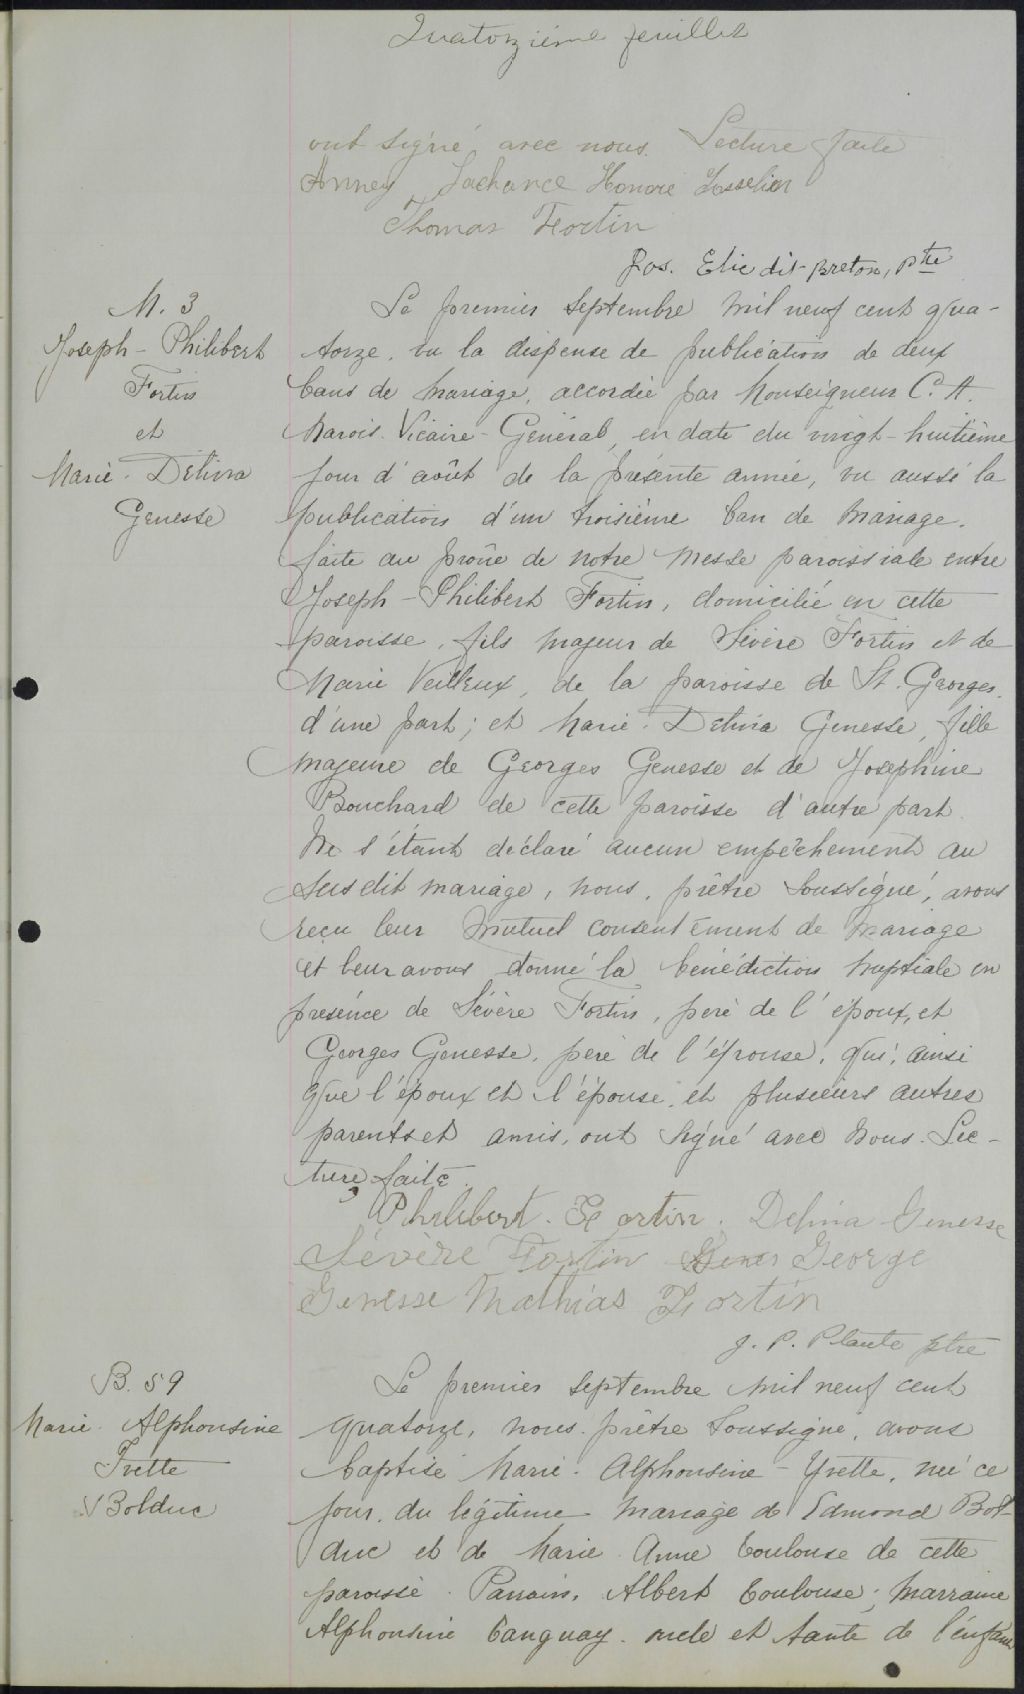 Quatorzième feuillet
ont signé avec nous. Lecture faite
Anney Lachance Honoré Josselin
Thomas Fortin
Jos. Elie dit Breton, ptre
M. 3
Joseph-Philibert
Fortin
et
Marie-Delina
Genesse
Le premier Septembre mil neuf cent qua-
torze, vu la dispense de publication de deux
bans de mariage, accordée par Monseigneur C. A.
Marois. Vicaire-Général, en date du vingt-huitième
jour d'août de la présente année, vu aussi la
publication d'un troisième ban de mariage,
faite au prône de notre messe paroissiale entre
Joseph-Philibert Fortin, domicilié en cette
paroisse, fils majeur de Sévère Fortin et de
Marie Veilleux, de la paroisse de St. Georges,
d'une part; et Marie-Delina Genesse, fille
majeure de Georges Genesse et de Josephine
Bouchard de cette paroisse d'autre part.
Ne s'étant déclaré aucun empêchement au
susdit mariage, nous, prêtre soussigné, avons
reçu leur mutuel consentement de mariage
et leur avons donné la bénédiction nuptiale en
présence de Sévère Fortin, père de l'époux, et
Georges Genesse, père de l'épouse, qui, ainsi
que l'époux et l'épouse, et plusieurs autres
parents et amis, ont signé avec nous. Lec-
ture faite.
Philibert Fortin. Delina Genesse
Sévère Fortin George
Genesse Mathias Fortin
J. P. Plante ptre
B. 59
Marie-Alphonsine
Yvette
Bolduc
Le premier Septembre mil neuf cent
quatorze, nous prêtre soussigné, avons
baptisé Marie-Alphonsine-Yvette, née ce
jour, du légitime mariage de Edmond Bol-
duc et de Marie-Anne Toulouse de cette
paroisse. Parrain, Albert Toulouse; marraine
Alphonsine Tanguay. oncle et tante de l'enfant